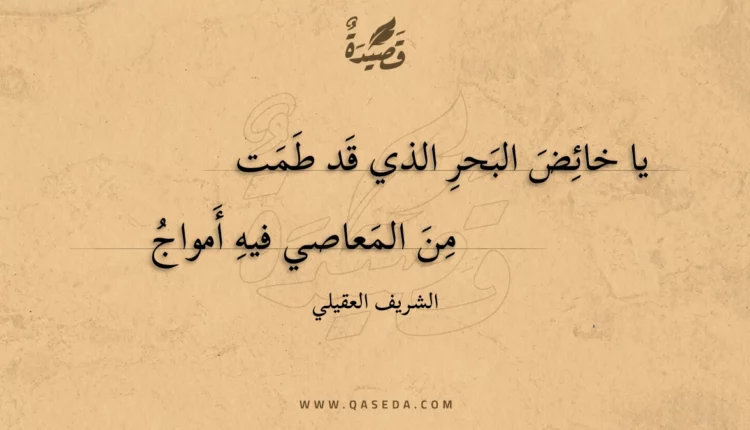 قَصِيْدَةٌ
يا خائِضَ البَحرِ الذي قَد طَمَت
مِنَ المَعاصي فيهِ أَمواجُ
الشريف العقيلي
WWW.QASEDA.COM